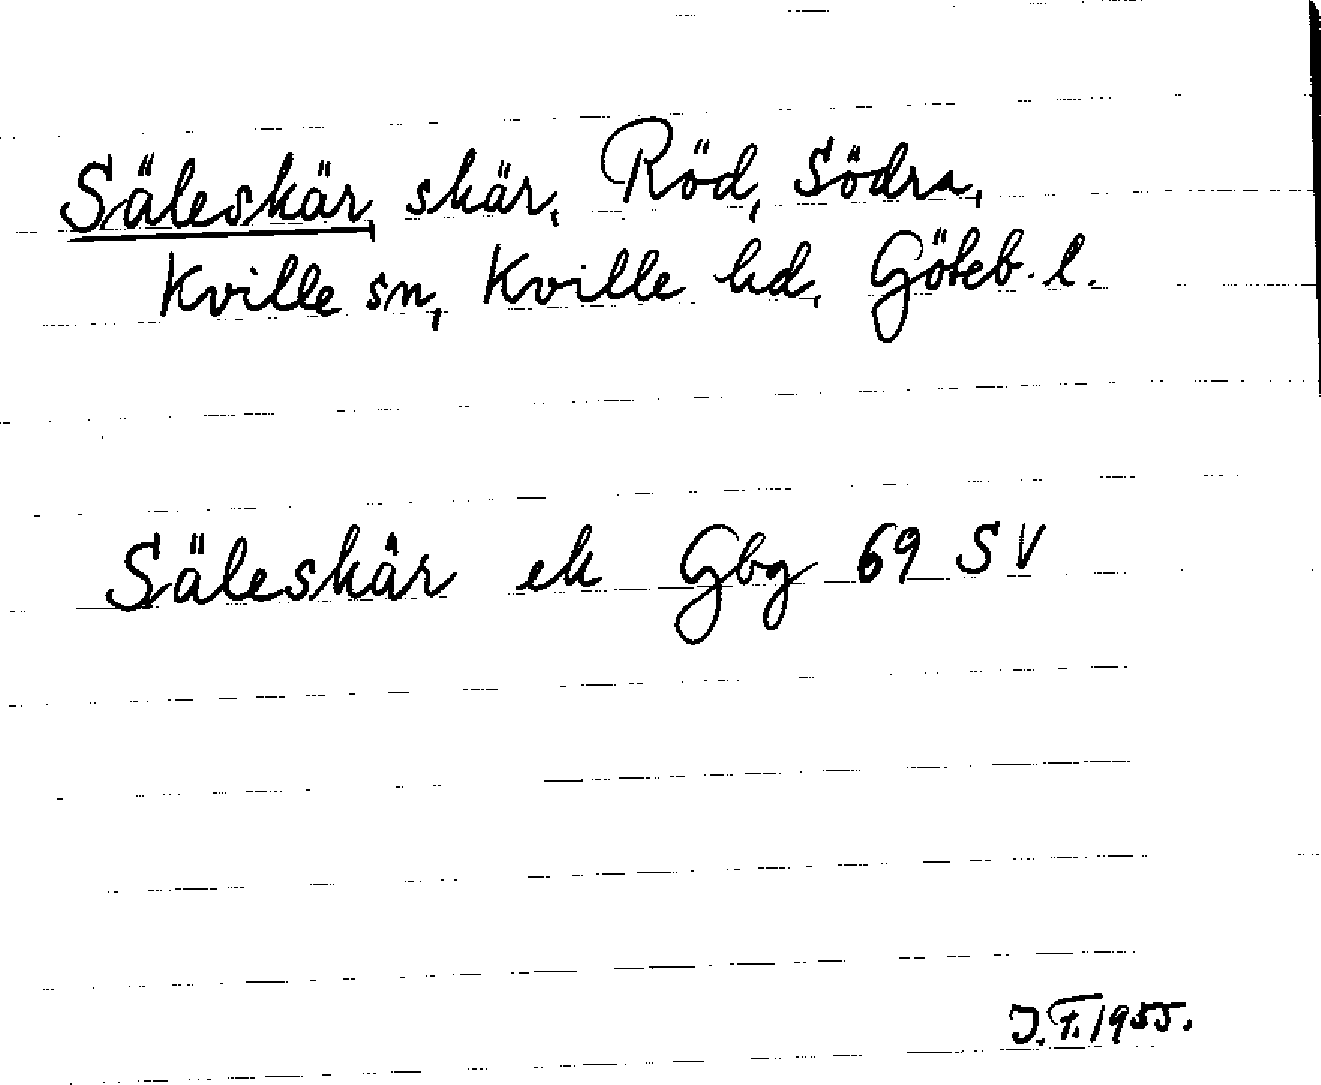 Säleskär, skär, Röd, Södra,
Kville sn, Kville hd, Göteb. l.
Säleskär ek Gbg 69 SV
J.F. 1955.